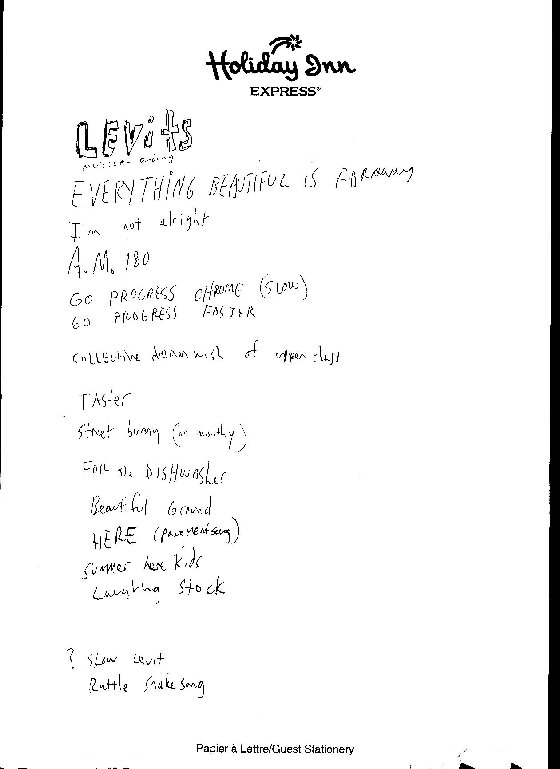 Holiday Inn
EXPRESS®
LEVitS
EVERYTHING BEAUTIFUL IS FARAWAY
I'm not alright
A.M. 180
GO PROGRESS CHROME (SLOW)
GO PROGRESS FASTER
COLLECTIVE DREAMWISH of upper class
FASTER
Street bunny (or monthy)
FOR the DISHWASHER
Beautiful Ground
HERE (PAVEMENT song)
Summer here kids
Laughing Stock
? Slow Levit
Rattle Snake Song
Papier à Lettre/Guest Stationery